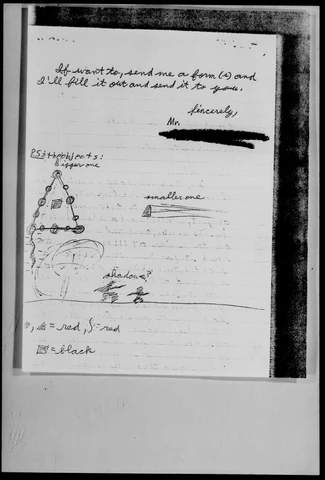 If want to, send me a form (s) and
I'll fill it out and send it to you.
Sincerely,
Mr.
P.S. the objects:
Bigger one
smaller one
shadows?
= red, S = red
= black